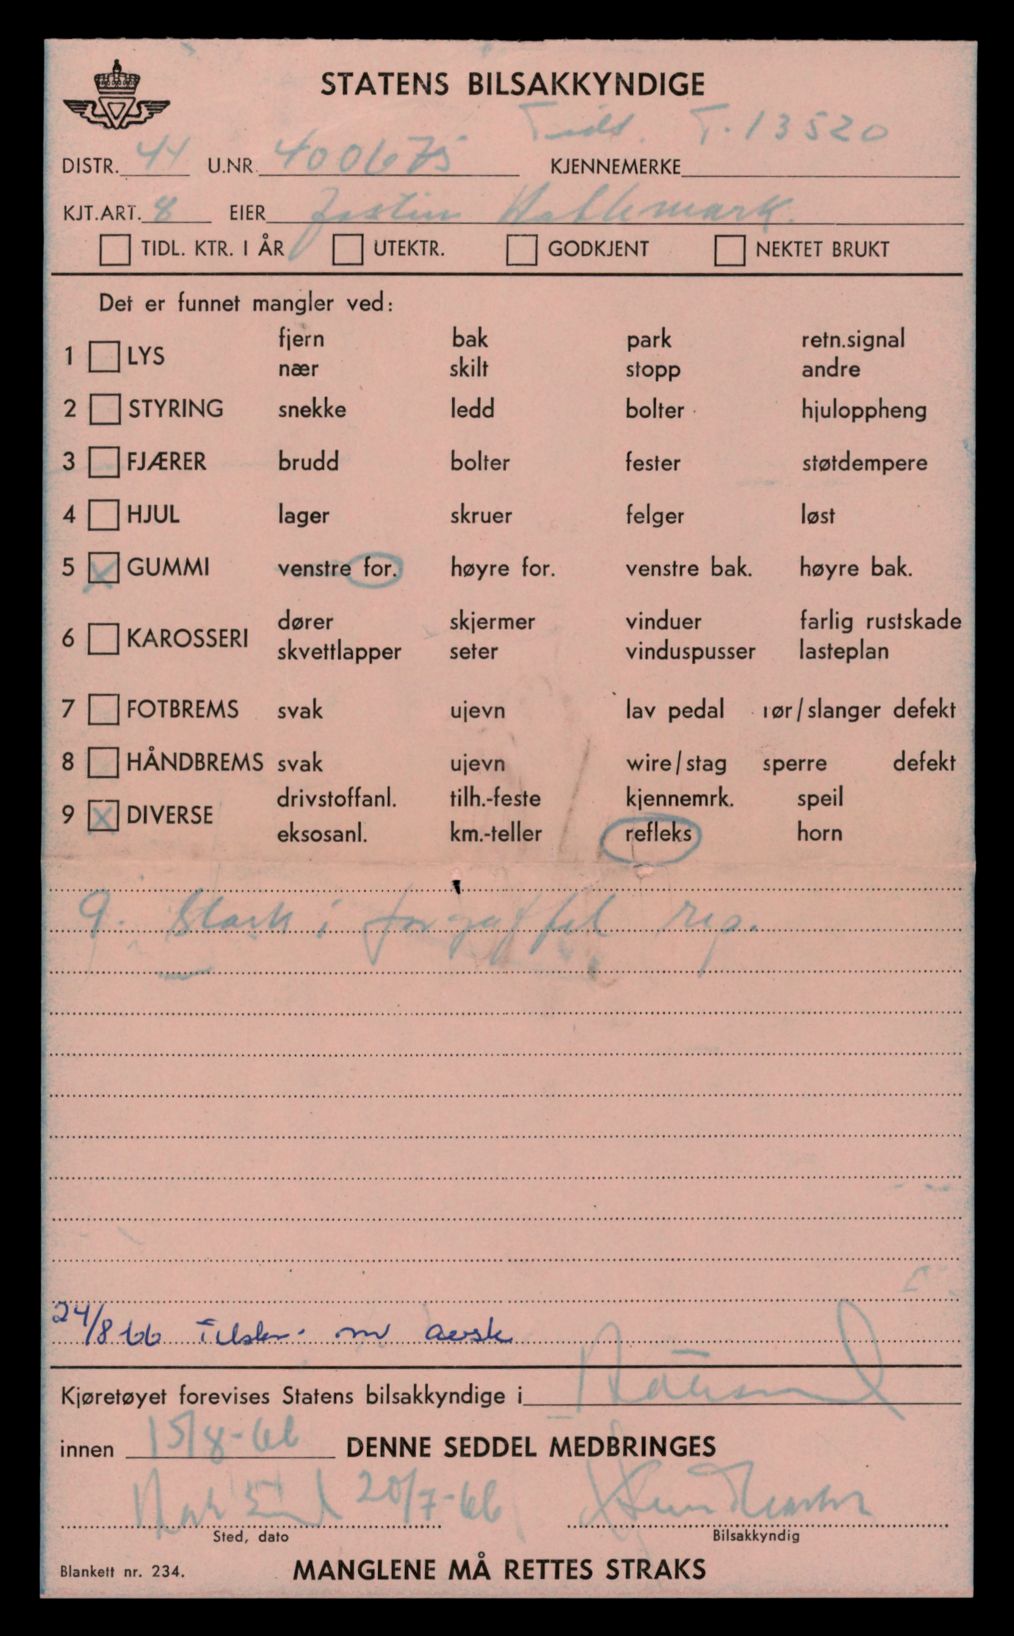 STATENS BILSAKKYNDIGE
Tidl. T-13520
DISTR. 44 U.NR. 400675 KJENNEMERKE
KJT.ART. 8 EIER Jostein
TIDL. KTR. I ÅR UTEKTR. GODKJENT NEKTET BRUKT
Det er funnet mangler ved:
1 LYS fjern bak park retn.signal
nær skilt stopp andre
2 STYRING snekke ledd bolter hjuloppheng
3 FJÆRER brudd bolter fester støtdempere
4 HJUL lager skruer felger løst
5 X GUMMI venstre for. høyre for. venstre bak. høyre bak.
6 KAROSSERI dører skjermer vinduer farlig rustskade
skvettlapper seter vinduspusser lasteplan
7 FOTBREMS svak ujevn lav pedal rør/slanger defekt
8 HÅNDBREMS svak ujevn wire/stag sperre defekt
9 X DIVERSE drivstoffanl. tilh.-feste kjennemrk. speil
eksosanl. km.-teller refleks horn
9. Slark i forgaffel rep.
24/8 66
Kjøretøyet forevises Statens bilsakkyndige i
innen 15/8-66 DENNE SEDDEL MEDBRINGES
20/7-66
Sted, dato Bilsakkyndig
Blankett nr. 234. MANGLENE MÅ RETTES STRAKS